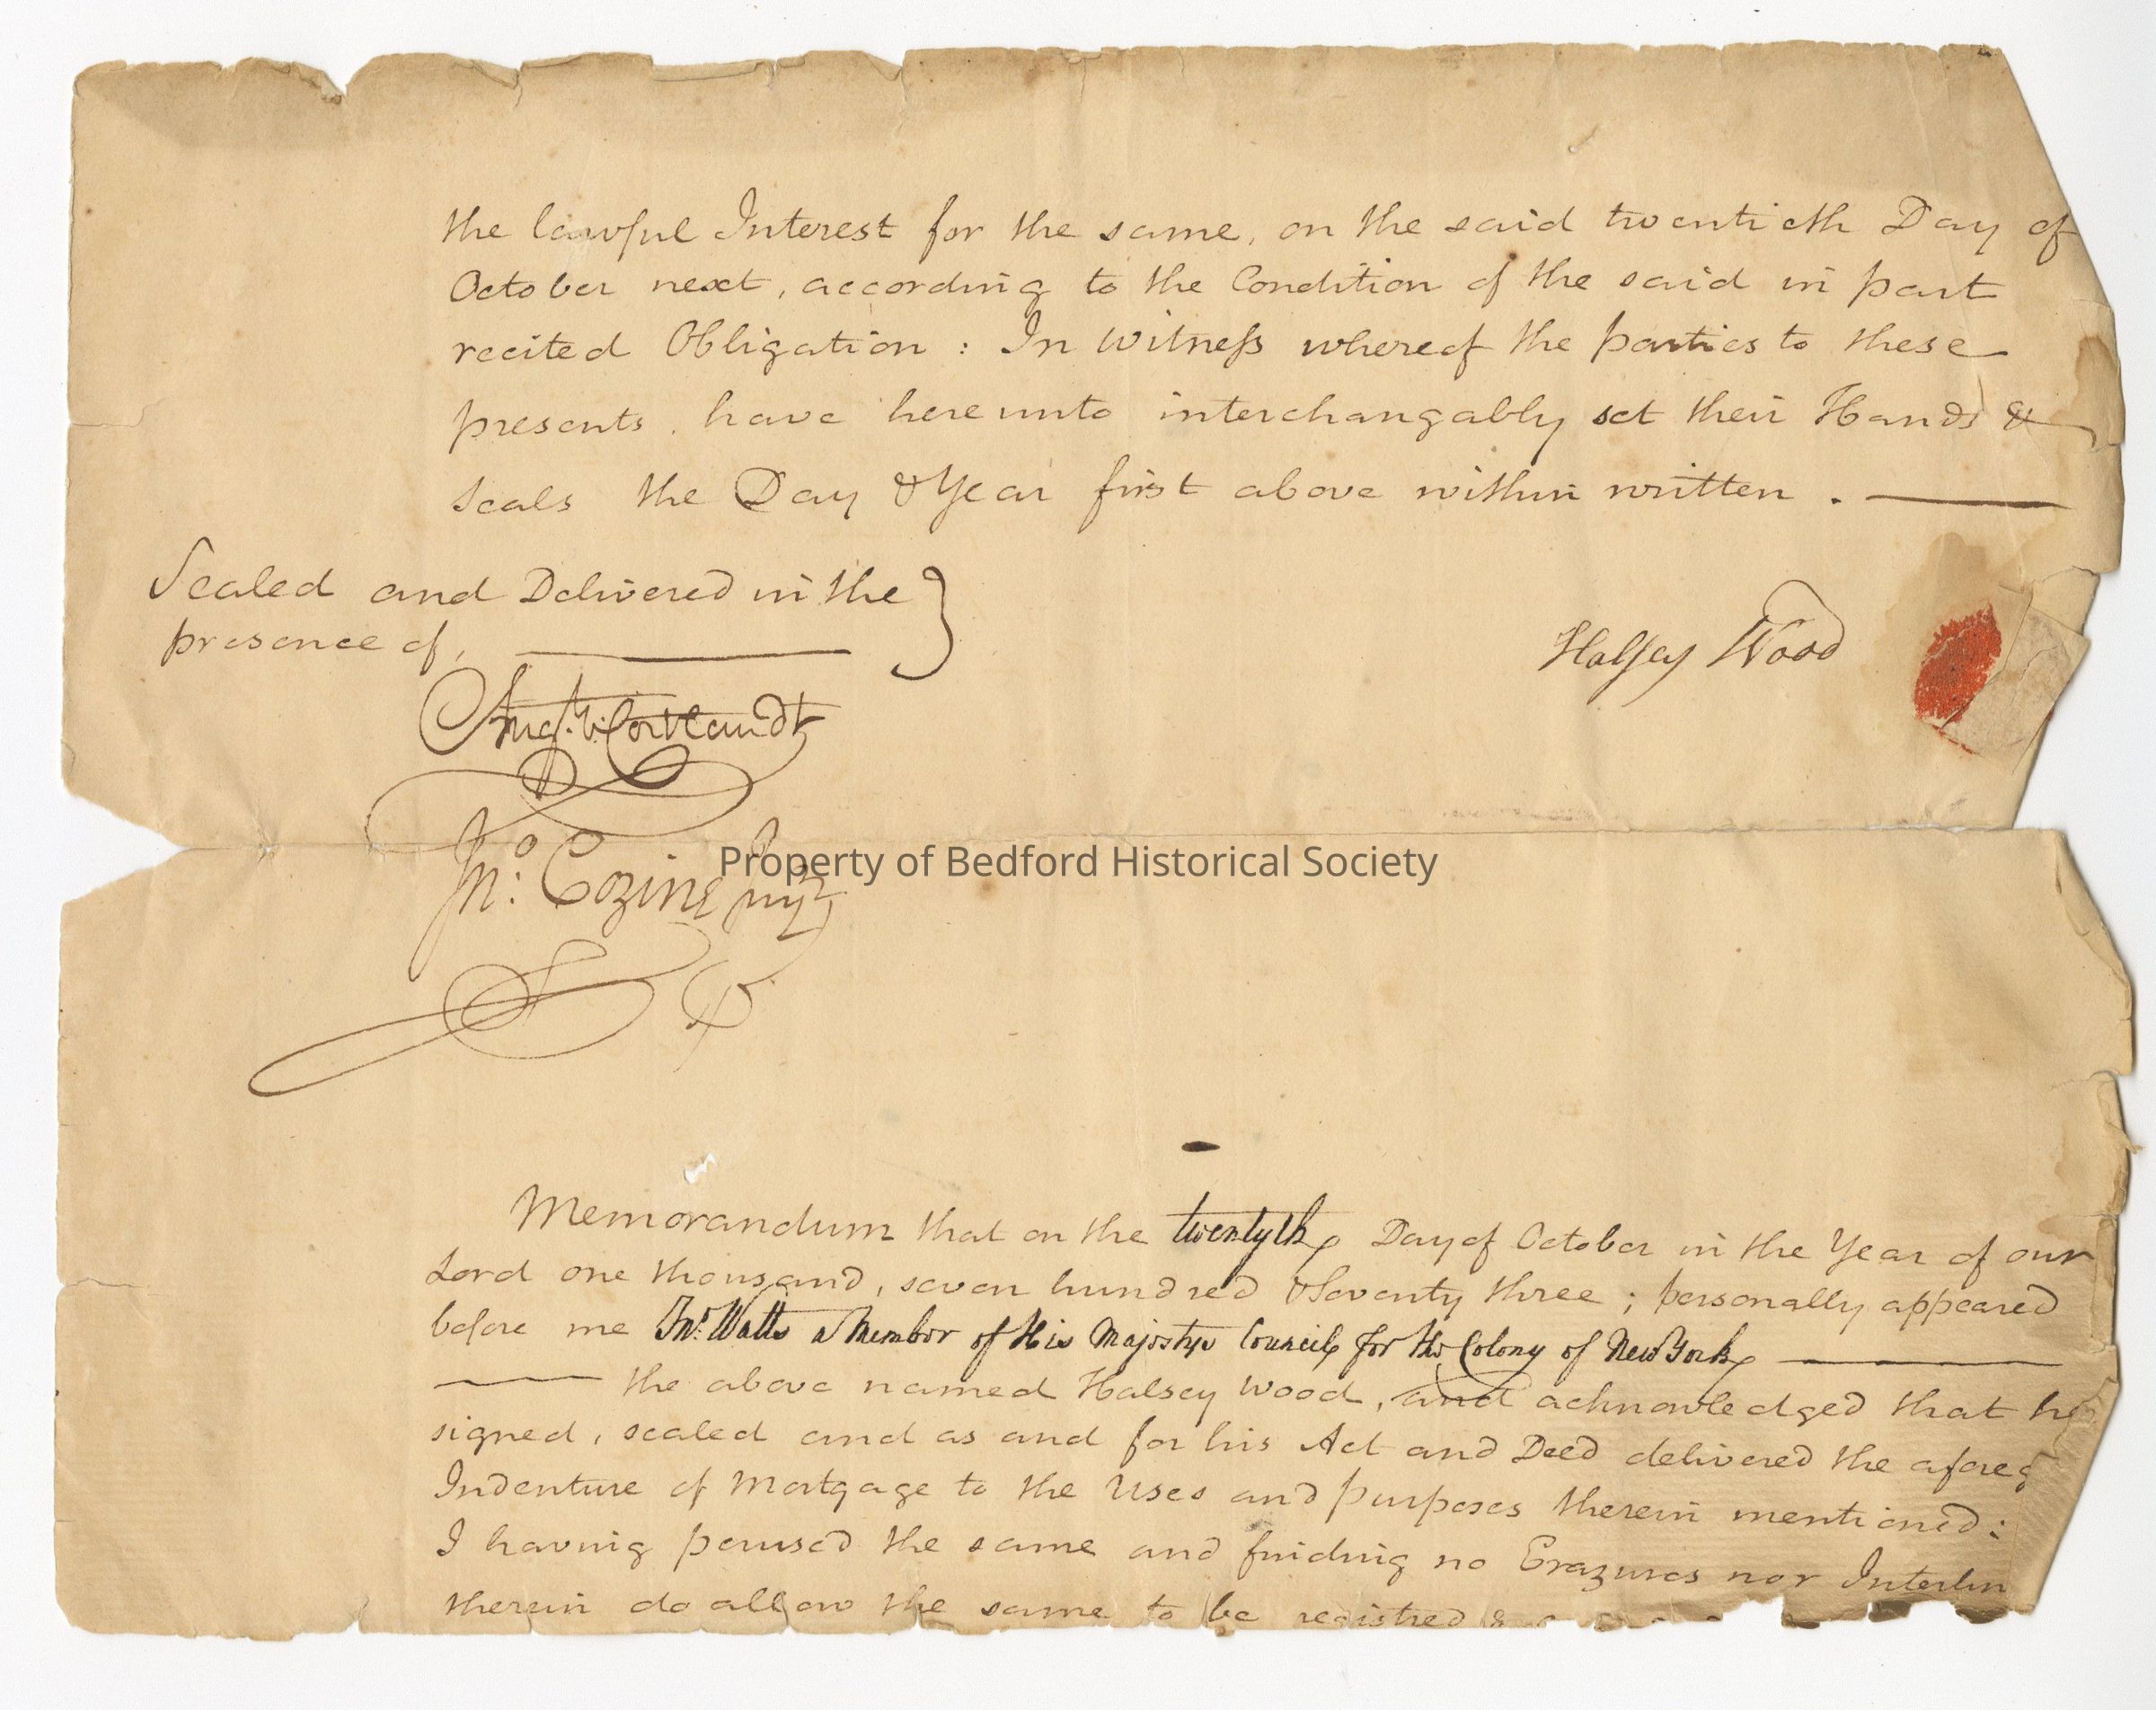 the lawful Interest for the same, on the said twentieth Day of
October next, according to the Condition of the said in part
recited Obligation : In Witneſs whereof the parties to these
presents have hereunto interchangably set their Hands &
Seals the Day & Year first above within written .
Sealed and Delivered in the
presence of,
Halsey Wood
Augt. V. Cortlandt
Jno: Cozine
Property of Bedford Historical Society
Memorandum that on the twentyth Day of October in the Year of our
Lord one thousand, seven hundred & Seventy three ; personally appeared
before me Jno. Watts a Member of His Majestys Council for the Colony of New York
the above named Halsey Wood, and acknowledged that he
signed, sealed and as and for his Act and Deed delivered the afores
Indenture of Mortgage to the Uses and purposes therein mentioned :
I having perused the same and finding no Erazures nor Interlin
therein do allow the same to be registred &